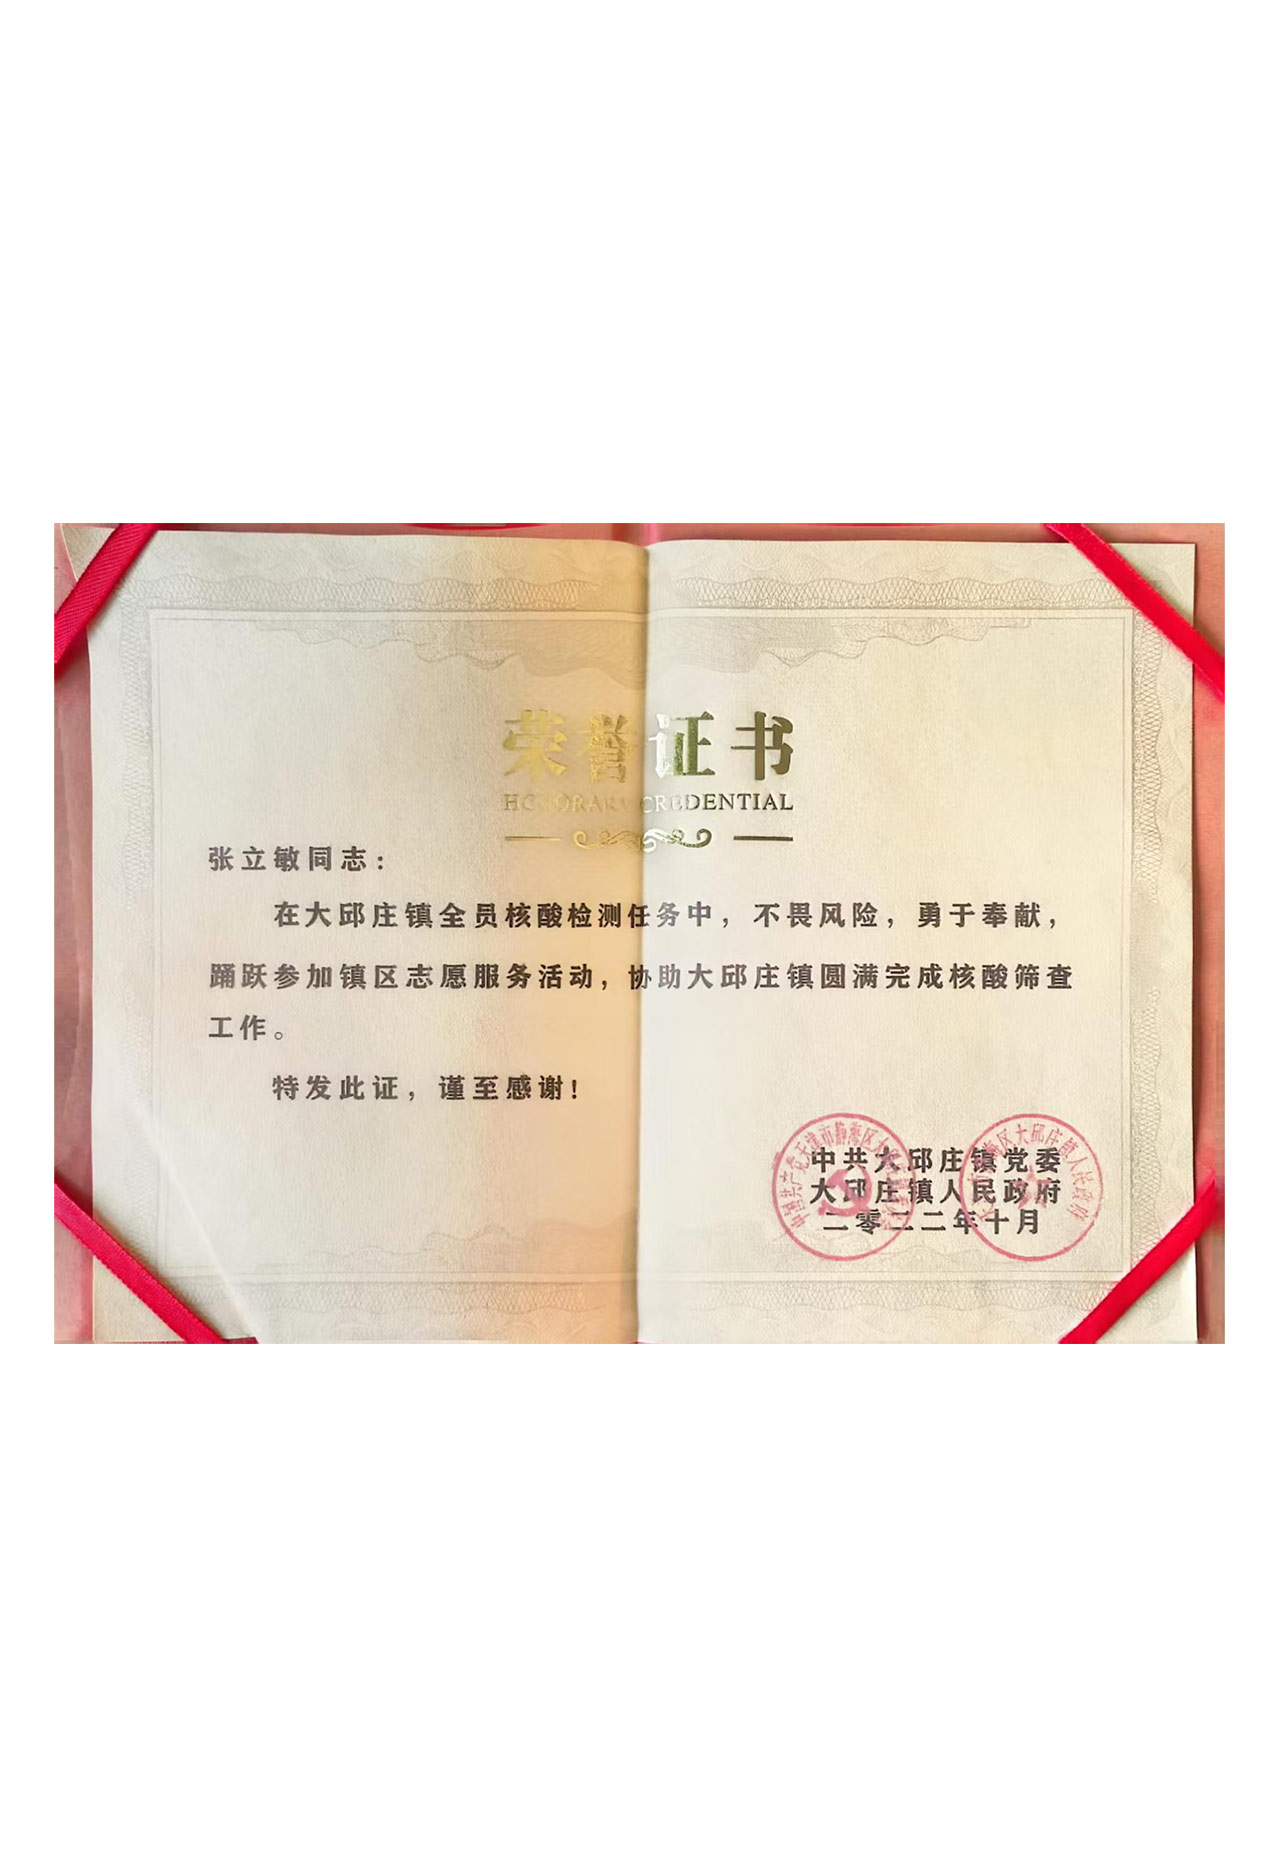 荣誉证书
HONORARY CREDENTIAL
张立敏同志：
在大邱庄镇全员核酸检测任务中，不畏风险，勇于奉献，
踊跃参加镇区志愿服务活动，协助大邱庄镇圆满完成核酸筛查
工作。
特发此证，谨至感谢！
中共大邱庄镇党委
大邱庄镇人民政府
二零二二年十月